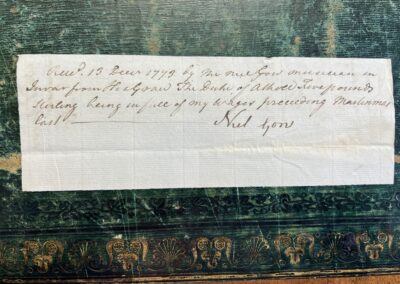 Recd. 13 Decr 1779 by me Niel Gow musician in
Inver from His Grace The Duke of Atholl Five pounds
Sterling being in full of my wages preceeding Martinmas
Last
Niel Gow